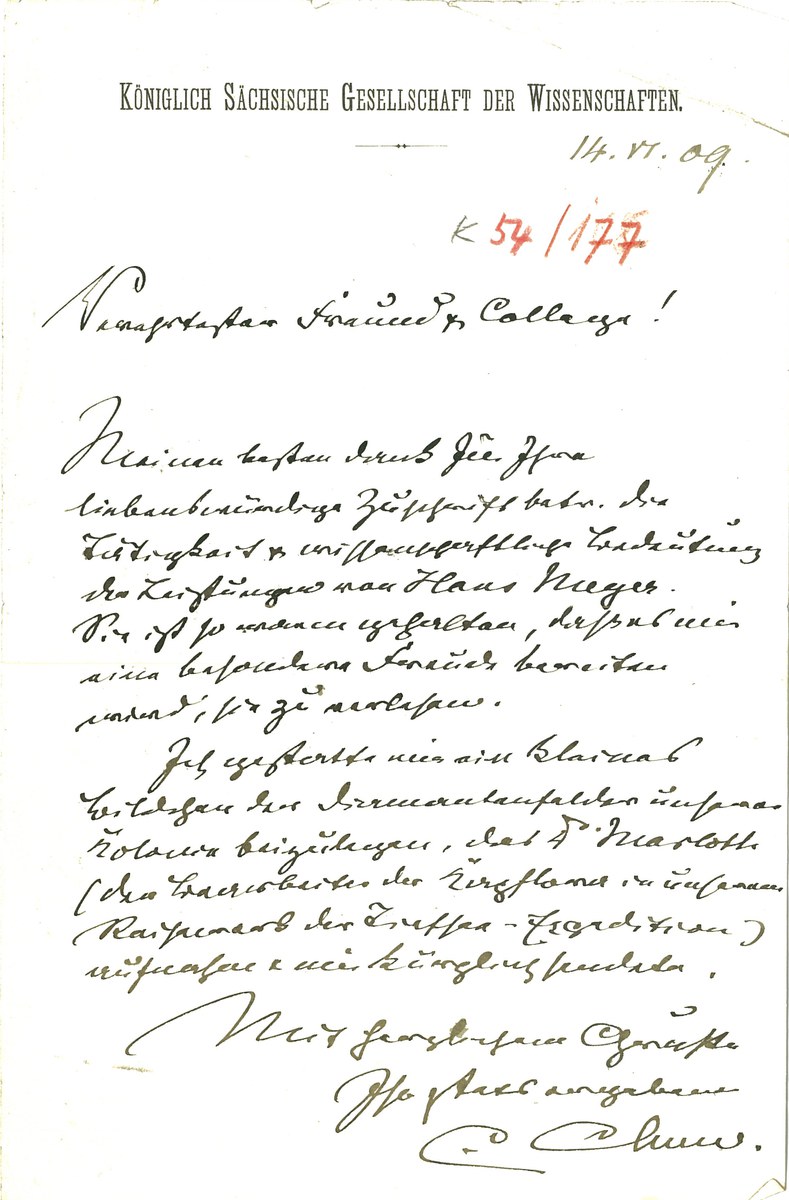 KÖNIGLICH SÄCHSISCHE GESELLSCHAFT DER WISSENSCHAFTEN.
14. VI. 09.
K 54/177
Verehrtester Freund & College!
Meinen besten Dank für Ihre
liebenswürdige Zuschrift betr. die
Tätigkeit & wissenschaftliche Bedeutung
der Leistungen von Hans Meyer.
Sie ist so warm gehalten, daß es mir
eine besondere Freude bereiten
wird, sie zu verlesen.
Ich gestatte mir ein kleines
Bildchen der Diamantenfelder unserer
Kolonie beizulegen, das Dr. Marloth
(der Bearbeiter der Kapflora in unserem
Reisewerk der Tiefsee-Expedition)
aufnahm & mir kürzlich sendete.
Mit herzlichem Gruße
Ihr stets ergebener
C. Chun.